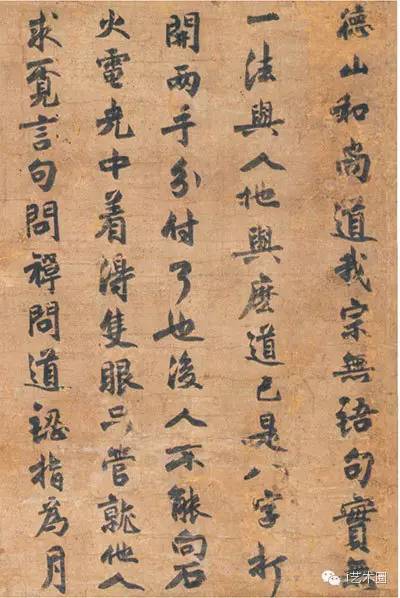 德山和尚道我宗無語句實無
一法與人他與麽道已是八字打
開两手分付了也後人不能向石
火電光中着得隻眼只管就他人
求覓言句問禪問道認指為月
i艺术圈